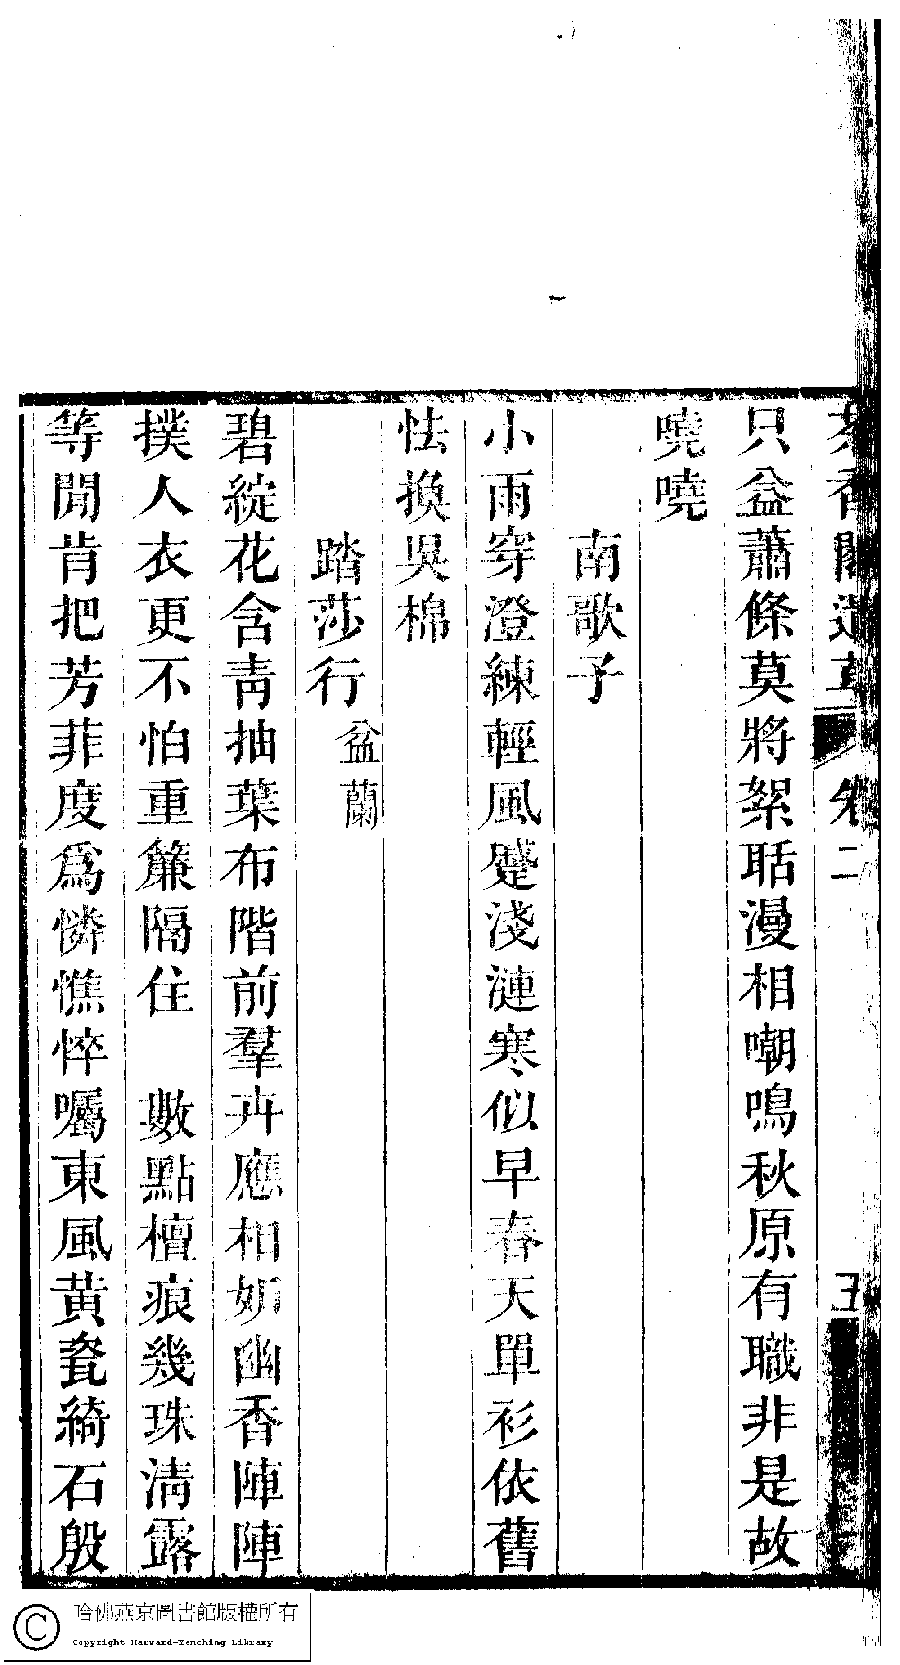 香閣遺草 卷二 五
只益蕭條莫將絮聒漫相嘲鳴秋原有職非是故
嘵嘵
南歌子
小雨穿澄練輕風蹙淺漣寒似早春天單衫依舊
怯換吳棉
踏莎行 盆蘭
碧綻花含靑抽葉布階前羣卉應相妒幽香陣陣
撲人衣更不怕重簾隔住 數點檀痕幾珠淸露
等閒肯把芳菲度爲憐憔悴囑東風黃瓷綺石殷
哈佛燕京圖書館版權所有
Copyright Harvard-Yenching Library